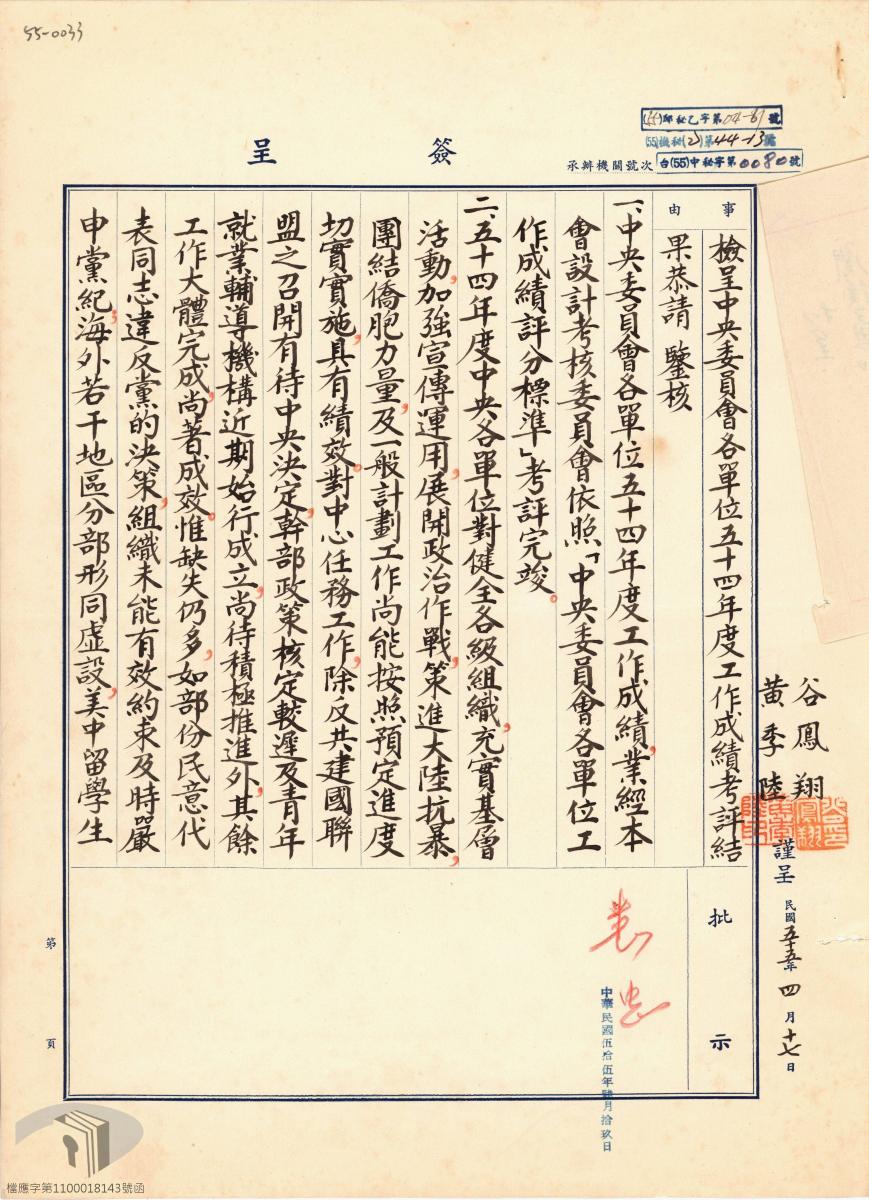 55-0033
(55)邱秘乙字第04-61號
(55)機秘(乙)第44-13號
台(55)中秘字第0080號
承辦機關號次
簽呈
事由
檢呈中央委員會各單位五十四年度工作成績考評結
果恭請 鑒核
一、中央委員會各單位五十四年度工作成績，業經本
會設計考核委員會依照「中央委員會各單位工
作成績評分標準」考評完竣。
二、五十四年度中央各單位對健全各級組織，充實基層
活動，加強宣傳運用，展開政治作戰，策進大陸抗暴，
團結僑胞力量，及一般計劃工作尚能按照預定進度
切實實施，具有績效。對中心任務工作，除反共建國聯
盟之召開有待中央決定，幹部政策核定較遲及青年
就業輔導機構近期始行成立，尚待積極推進外，其餘
工作大體完成，尚著成效。惟缺失仍多，如部份民意代
表同志違反黨的決策，組織未能有效約束及時嚴
申黨紀，海外若干地區分部形同虛設，美中留學生
谷鳳翔
黃季陸
謹呈
民國五十五年四月十七日
批示
中華民國伍拾伍年肆月拾玖日
第頁
檔應字第1100018143號函